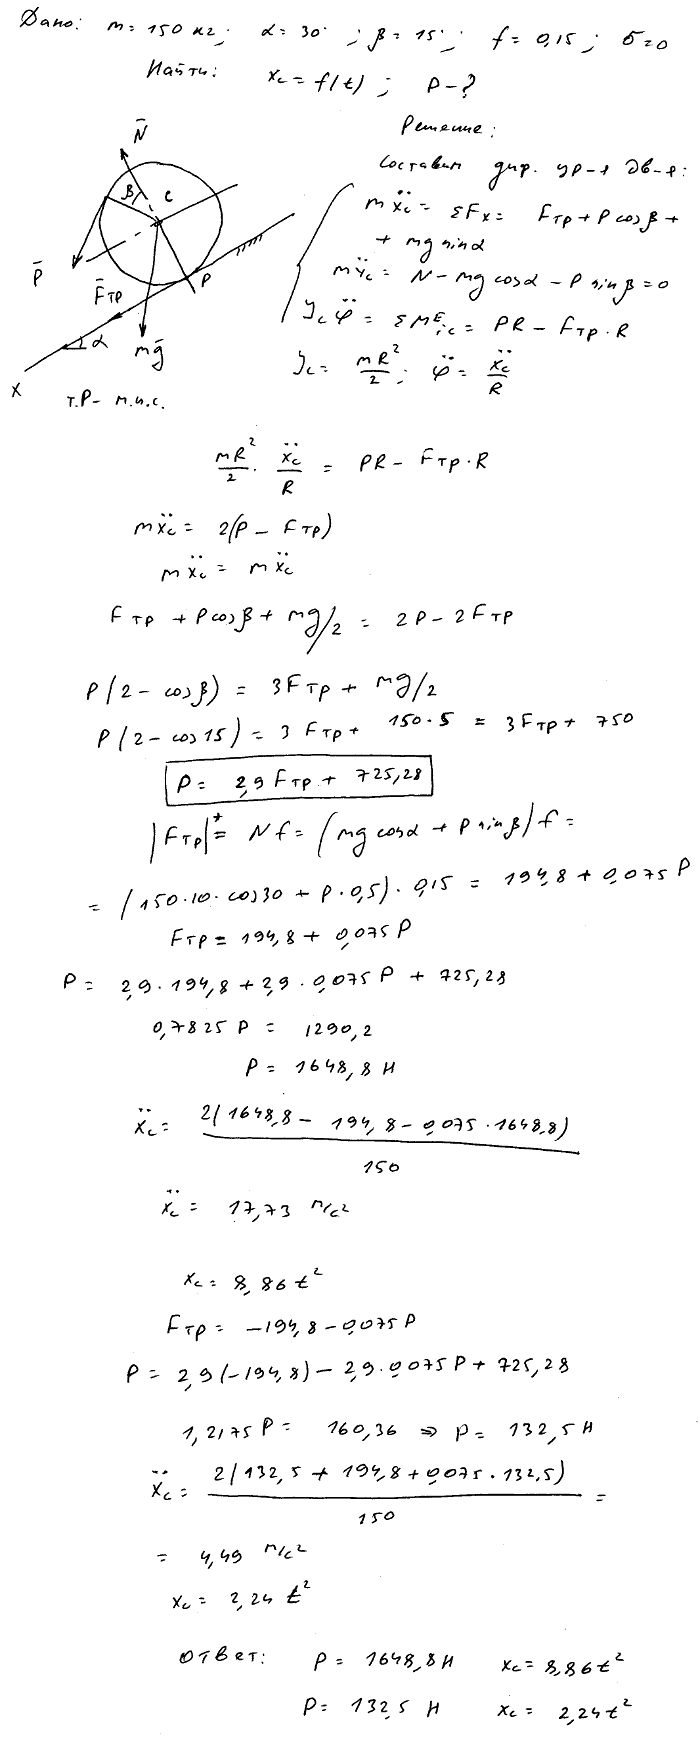 Дано: m = 150 кг; α = 30°; β = 15°; f = 0,15; δ=0
Найти: xc = f(t); P-?
Решение:
Составим диф. ур-я дв-я:
mẍc = ΣFx = Fтр + P cosβ +
+ mg sinα
mÿc = N - mg cosα - P sinβ = 0
Jc φ̈ = ΣM^E_ic = PR - Fтр·R
Jc = mR²/2; φ̈ = ẍc/R
N̄
β
C
P̄
F̄тр
P
α
mḡ
X
т.P - м.ц.с.
mR²/2 · ẍc/R = PR - Fтр·R
mẍc = 2(P - Fтр)
mẍc = mẍc
Fтр + P cosβ + mg/2 = 2P - 2Fтр
P(2 - cosβ) = 3Fтр + mg/2
P(2 - cos15) = 3Fтр + 150·5 = 3Fтр + 750
P = 2,9 Fтр + 725,28
|Fтр|* = Nf = (mg cosα + P sinβ)f =
= (150·10·cos30 + P·0,5)·0,15 = 194,8 + 0,075 P
Fтр = 194,8 + 0,075 P
P = 2,9·194,8 + 2,9·0,075 P + 725,28
0,7825 P = 1290,2
P = 1648,8 Н
ẍc = 2(1648,8 - 194,8 - 0,075·1648,8)/150
ẍc = 17,73 м/с²
xc = 8,86 t²
Fтр = -194,8 - 0,075 P
P = 2,9(-194,8) - 2,9·0,075 P + 725,28
1,2175 P = 160,36 ⇒ P = 132,5 Н
ẍc = 2(132,5 + 194,8 + 0,075·132,5)/150 =
= 4,49 м/с²
xc = 2,24 t²
Ответ: P = 1648,8 Н xc = 8,86 t²
P = 132,5 Н xc = 2,24 t²